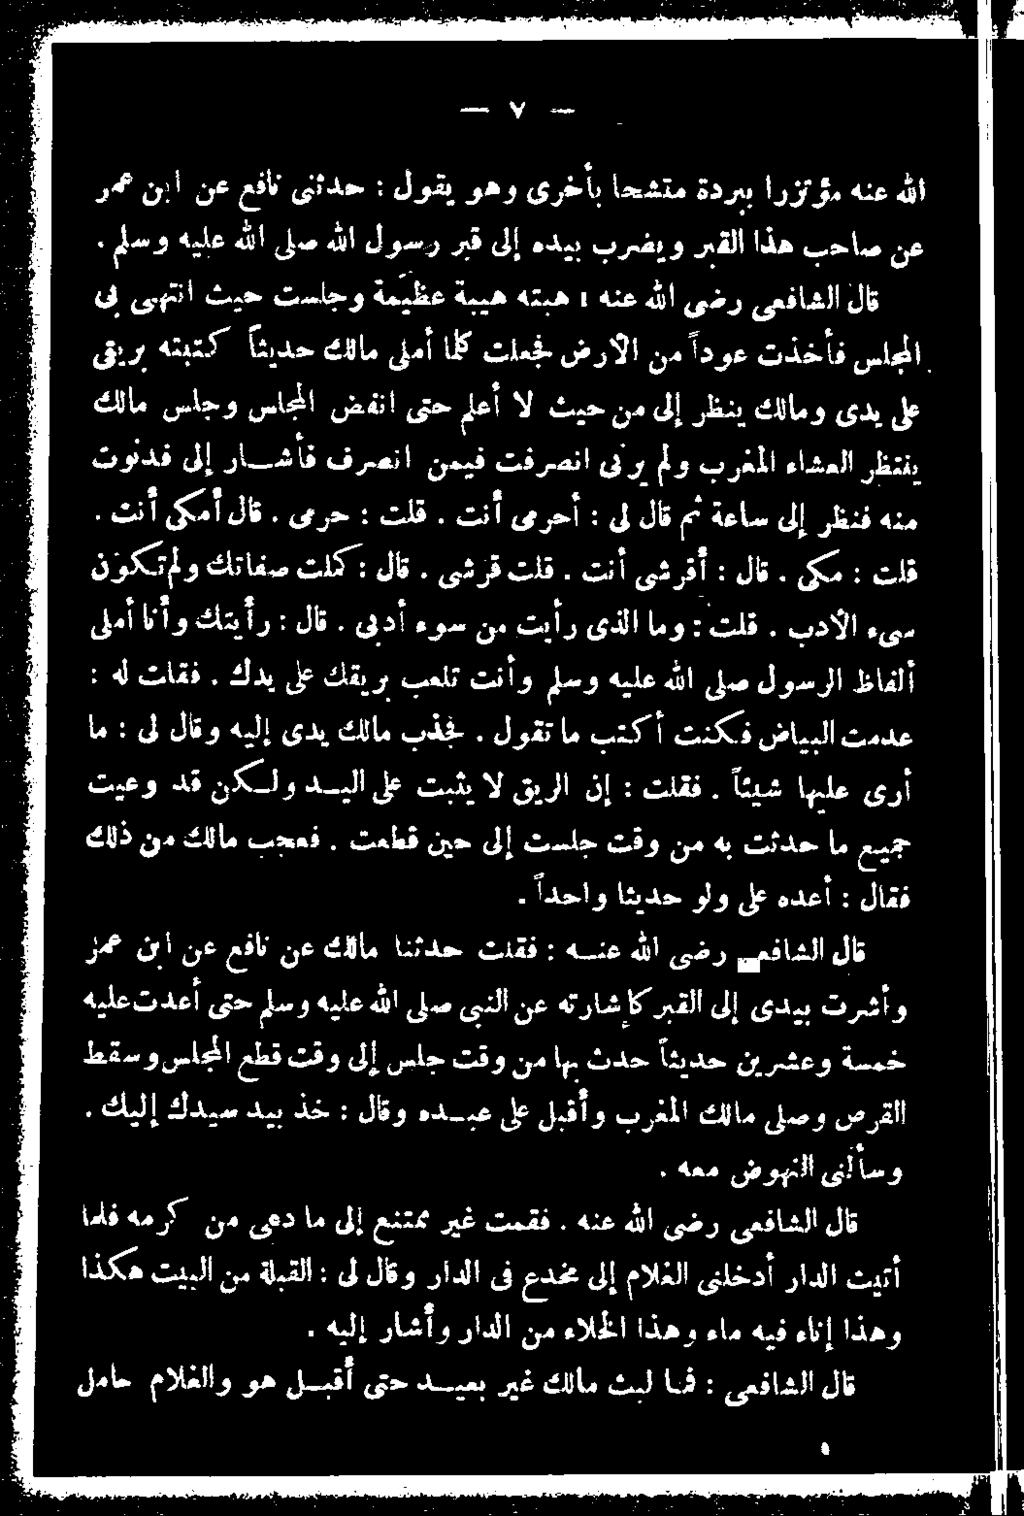 — ٧ —
الله عنه مؤتزرا ببردة متشحا بأخرى وهو يقول : حدثنى نافع عن ابن عمر
عن صاحب هذا القبر ويضرب بيده إلى قبر رسول الله صلى الله عليه وسلم .
قال الشافعى رضى الله عنه : هبته هيبة عظيمة وجلست حيث انتهى بى
المجلس فأخذت عوداً من الأرض فجعلت كلما أملى مالك حديثاً كتبته بريقى
على يدى ومالك ينظر إلى من حيث لا أعلم حتى انفض المجلس وجلس مالك
يفتظر العشاء المغرب ولم يرنى انصرفت فيمن انصرف فأشار إلى فدنوت
منه فنظر إلى ساعة ثم قال لى : أحرمى أنت . قلت : حرمى . قال أمكى أنت .
قلت : مكى . قال : أقرشى أنت . قلت قرشى . قال : كملت صفاتك ولم تكون
سىء الأدب . قلت : وما الذى رأيت من سوء أدبى . قال : رأيتك وأنا أملى
ألفاظ الرسول صلى الله عليه وسلم وأنت تلعب بريقك على يدك . فقات له :
عدمت البياض فكنت أكتب ما تقول . فجذب مالك يدى إليه وقال لى : ما
أرى عليها شيئاً . فقلت : إن الريق لا يثبت على اليد ولكن قد وعيت
جميع ما حدثت به من وقت جلست إلى حين قطعت . فعجب مالك من ذلك
فقال : أعده على ولو حديثا واحداً .
قال الشافعى رضى الله عنه : فقلت حدثنا مالك عن نافع عن ابن عمر
وأشرت بيدى إلى القبر كإشارته عن النبى صلى الله عليه وسلم حتى أعدت عليه
خمسة وعشرين حديثاً حدث بها من وقت جلس إلى وقت قطع المجلس وسقط
القرص وصلى مالك المغرب وأقبل على عبده وقال : خذ بيد سيدك إليك .
وسألنى النهوض معه .
قال الشافعى رضى الله عنه . فقمت غير ممتنع إلى ما دعى من كرمه فلما
أتيت الدار أدخلنى الغلام إلى مخدع فى الدار وقال لى : القبلة من البيت هكذا
وهذا إناء فيه ماء وهذا الخلاء من الدار وأشار إليه .
قال الشافعى : فما لبث مالك غير بعيد حتى أقبل هو والغلام حامل